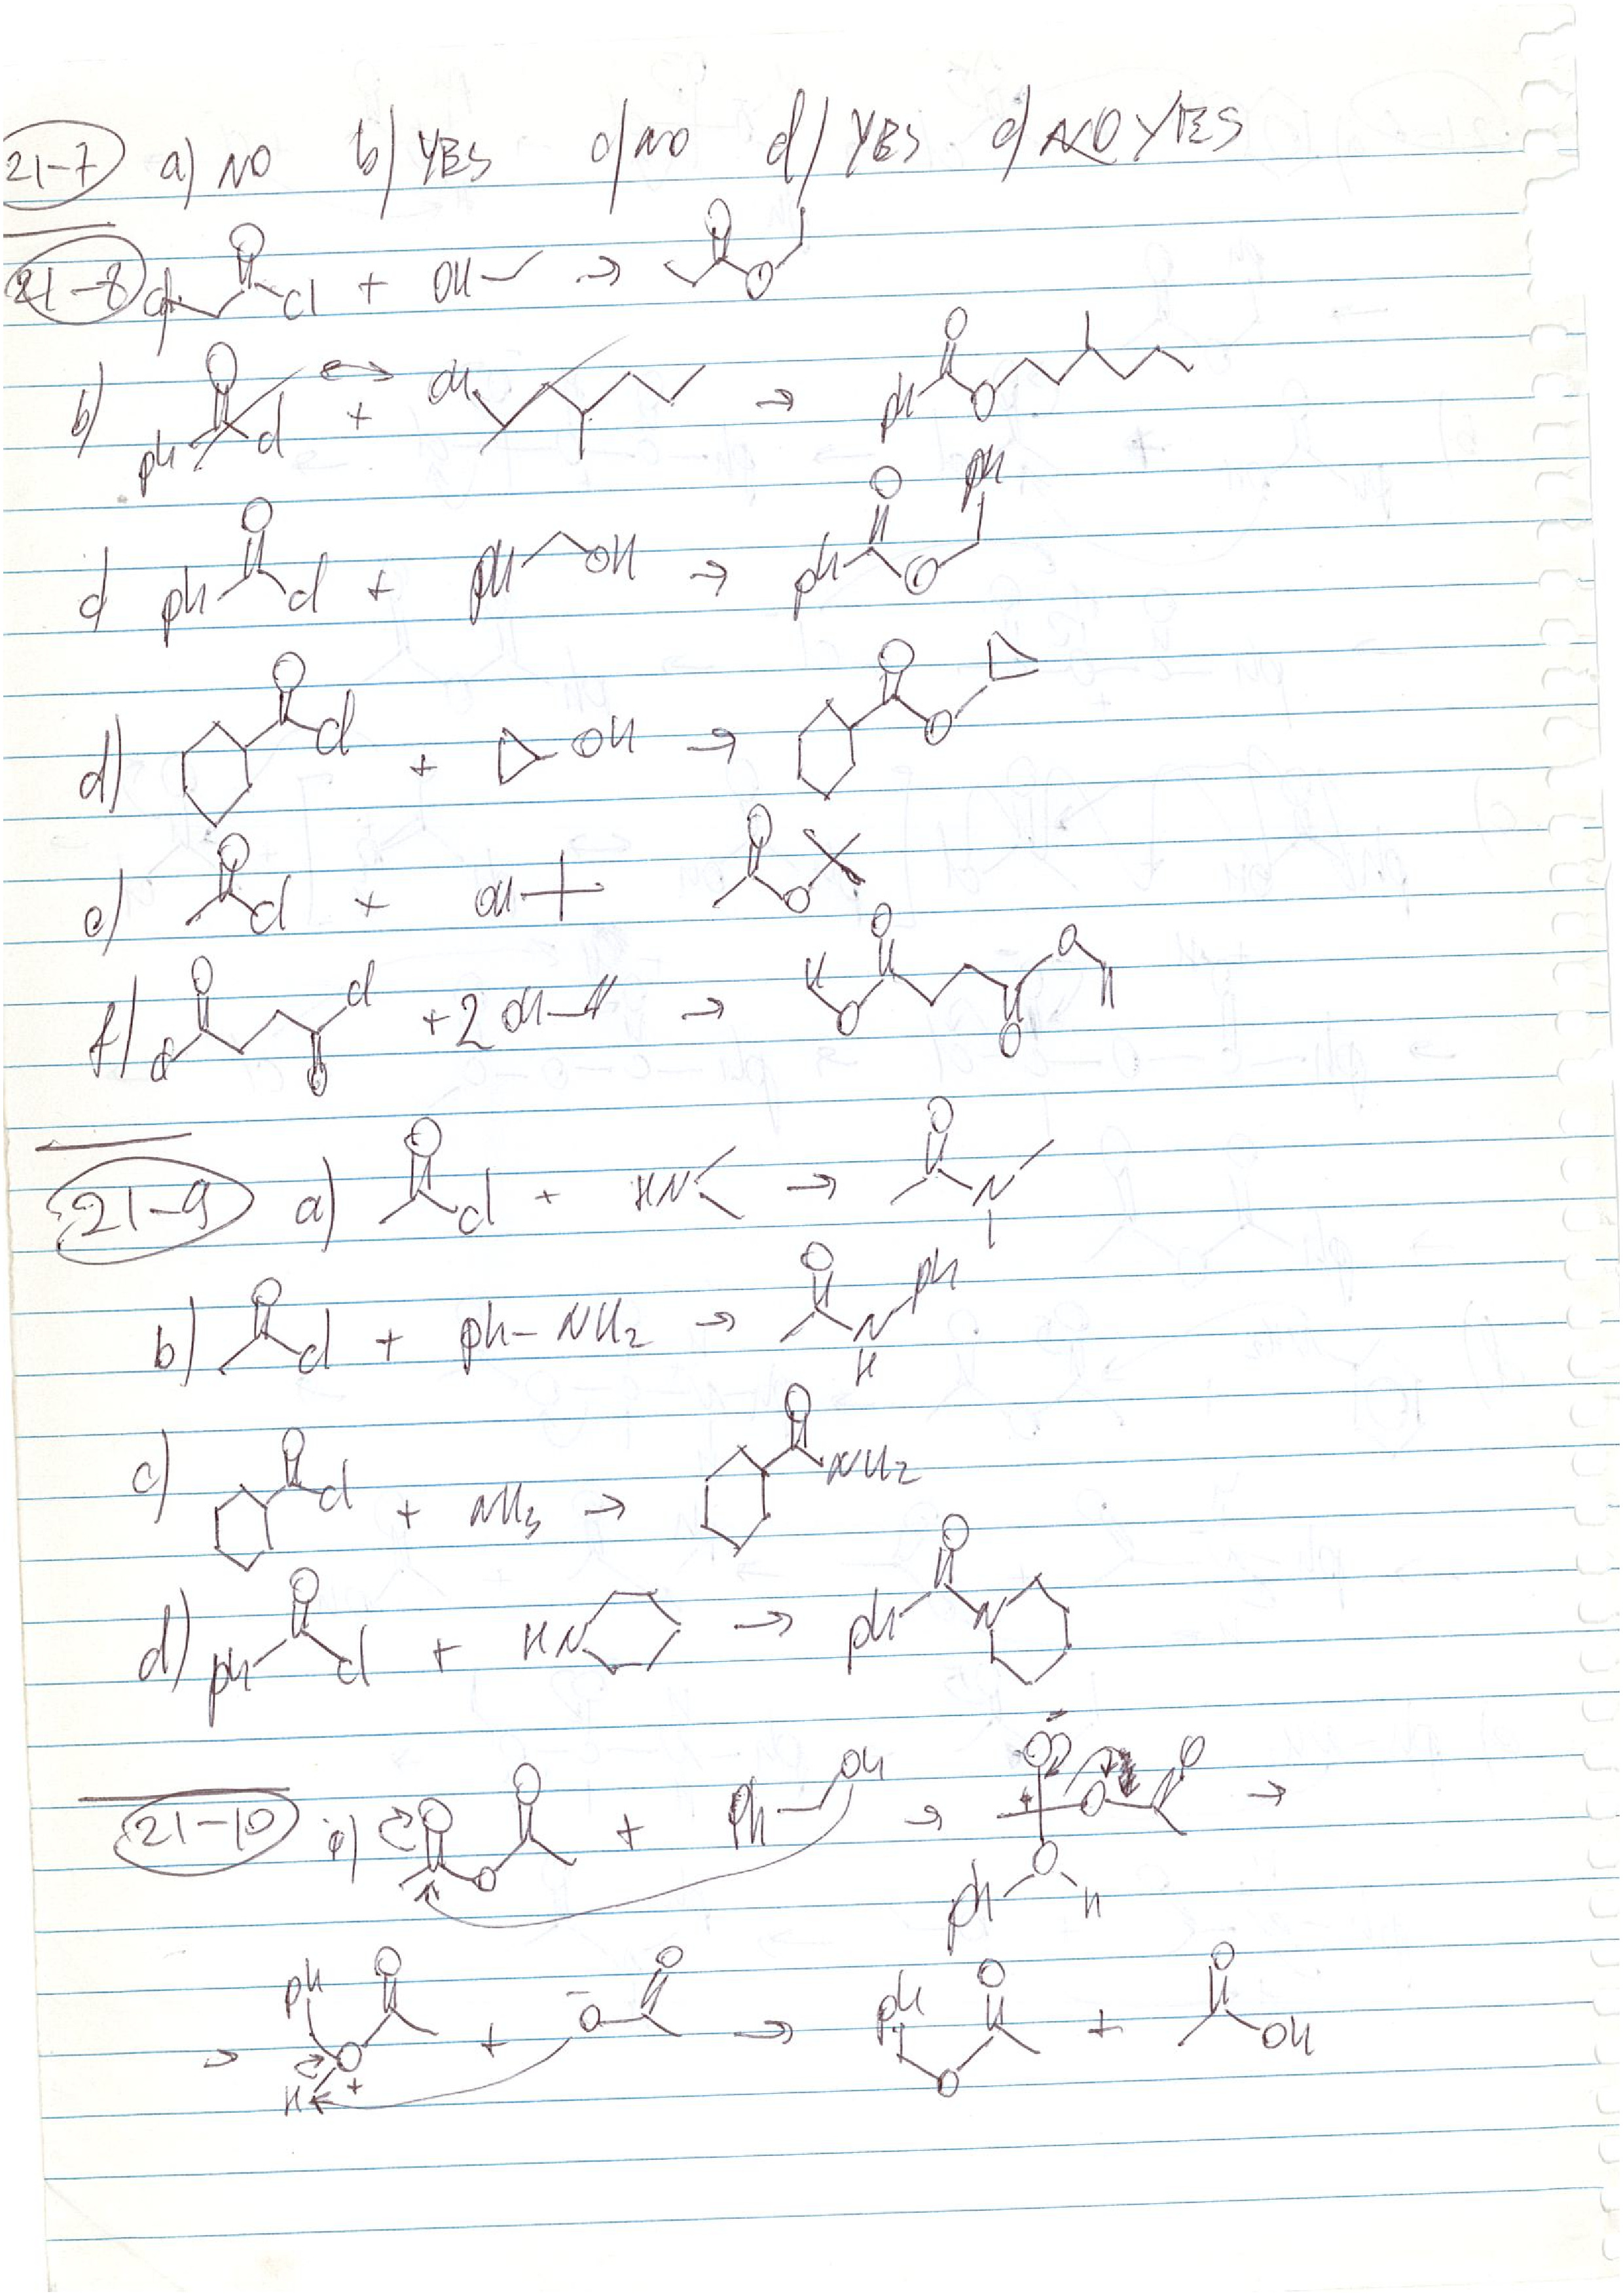 21-7 a) NO b) YES c) NO d) YES e) NO YES
21-8 a) O Cl + OH → O O
b) O ph Cl + OH → O ph O
c) ph O Cl + ph OH → ph O O ph
d) O Cl + OH → O O
e) O Cl + OH O O
f) O Cl O Cl + 2 OH → O O O O
21-9 a) O Cl + HN → O N
b) O Cl + ph-NH2 → O N H ph
c) O Cl + NH3 → O NH2
d) ph O Cl + HN → ph O N
21-10 O O O + Ph OH → O⁻ O O ph O H →
→ ph O O H + + ⁻O O → ph O O + O OH